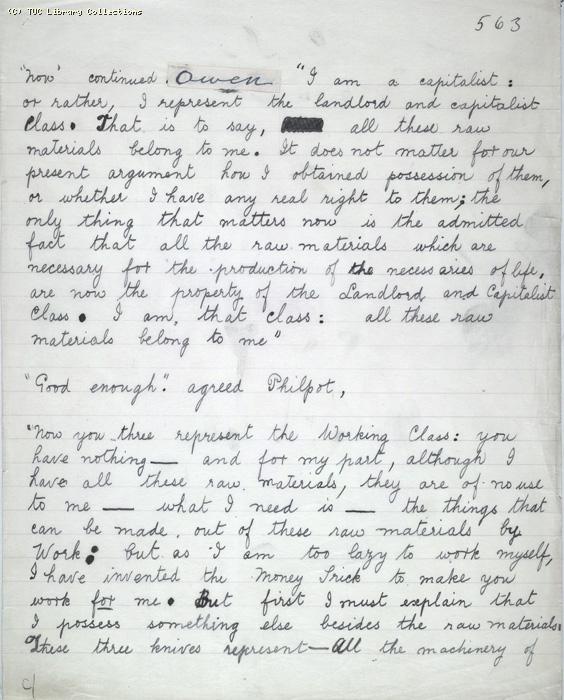 (C) TUC Library Collections
563
"Now" continued Owen "I am a capitalist:
or rather, I represent the landlord and capitalist
Class. That is to say, all these raw
materials belong to me. It does not matter for our
present argument how I obtained possession of them,
or whether I have any real right to them; the
only thing that matters now is the admitted
fact that all the raw materials which are
necessary for the production of the necessaries of life,
are now the property of the Landlord and Capitalist
Class. I am, that class: all these raw
materials belong to me"
"Good enough". agreed Philpot,
"Now you three represent the Working Class: you
have nothing — and for my part, although I
have all these raw materials, they are of no use
to me — what I need is — the things that
can be made out of these raw materials by
Work: but as I am too lazy to work myself,
I have invented the Money Trick to make you
work for me. But first I must explain that
I possess something else besides the raw materials.
These three knives represent — All the machinery of